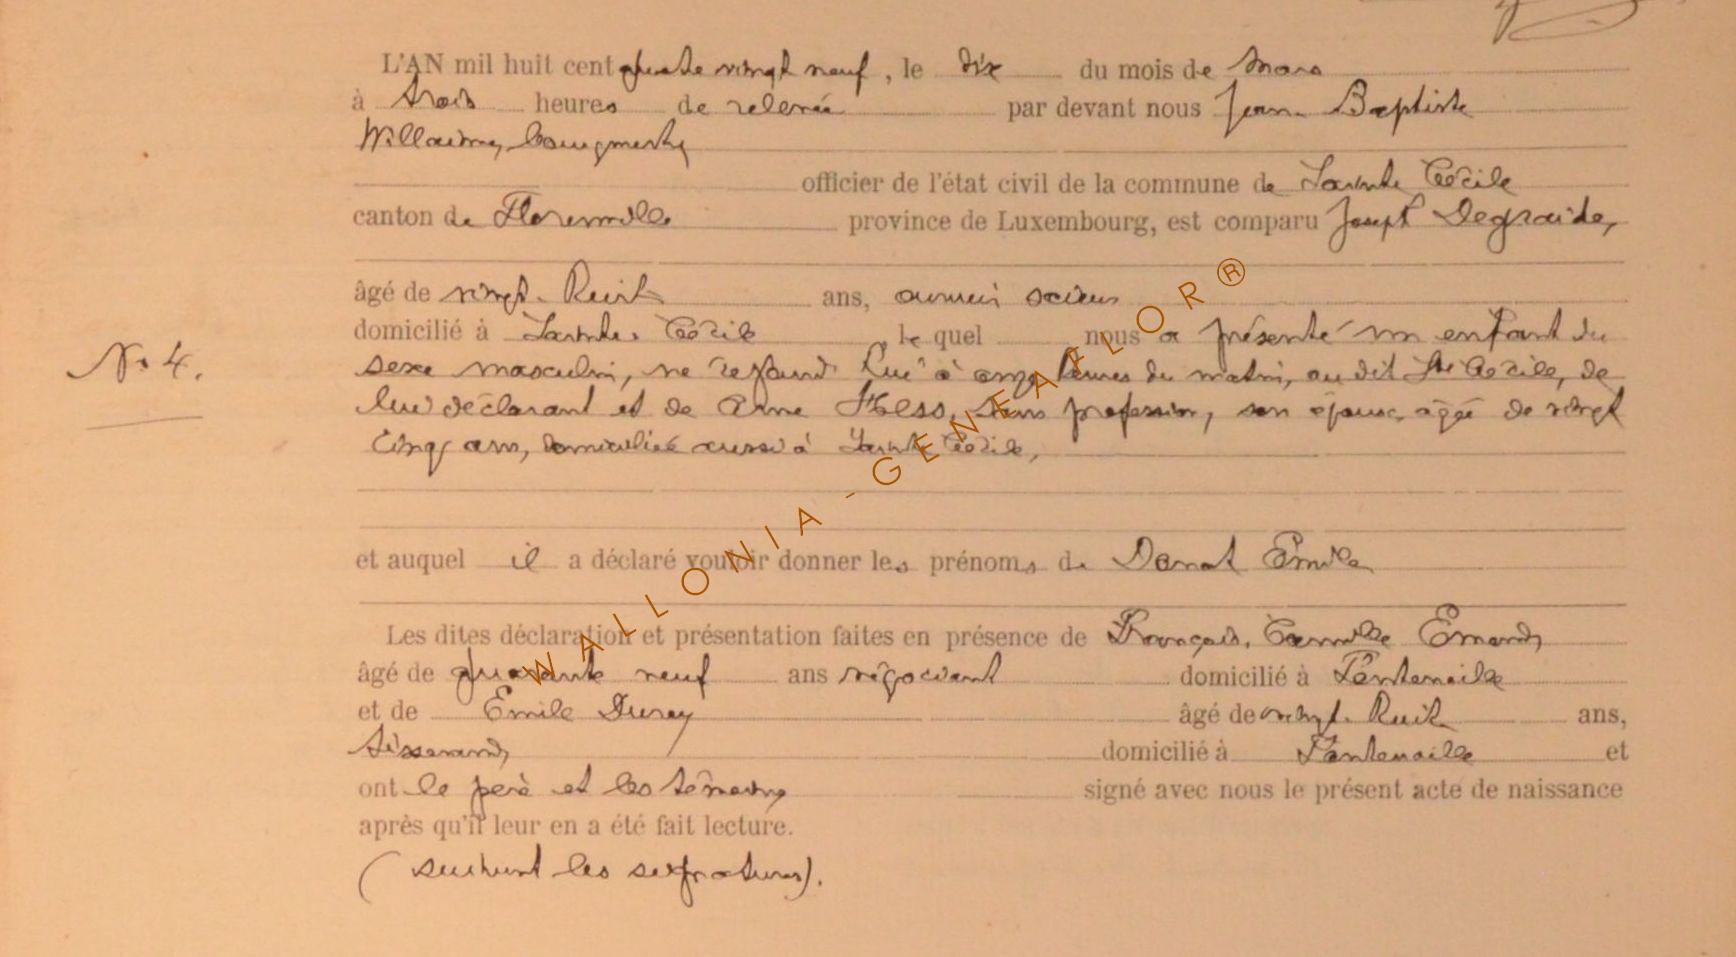 L'AN mil huit cent quatre vingt neuf, le dix du mois de Mars
à trois heures de relevée par devant nous Jean Baptiste
Willaime, bourgmestre
officier de l'état civil de la commune de Sainte Cécile
canton de Florenville province de Luxembourg, est comparu Joseph Degraide,
âgé de vingt-huit ans, ans,
domicilié à Sainte Cécile le quel nous a présenté un enfant du
N° 4.
sexe masculin, né à onze heures du matin, au dit Ste Cécile, de
lui déclarant et de Anne Hess, sans profession, son épouse, âgé de vingt
cinq ans, domiciliée aussi à Sainte Cécile,
et auquel il a déclaré vouloir donner les prénoms de Donat Emile
Les dites déclaration et présentation faites en présence de François, Camille Emond,
âgé de quarante neuf ans négociant domicilié à Fontenaille
et de Emile Durey âgé de vingt-huit ans,
tisserand, domicilié à Fontenaille et
ont le père et les témoins signé avec nous le présent acte de naissance
après qu'il leur en a été fait lecture.
(suivent les signatures).
WALLONIA-GENEAFLOR®